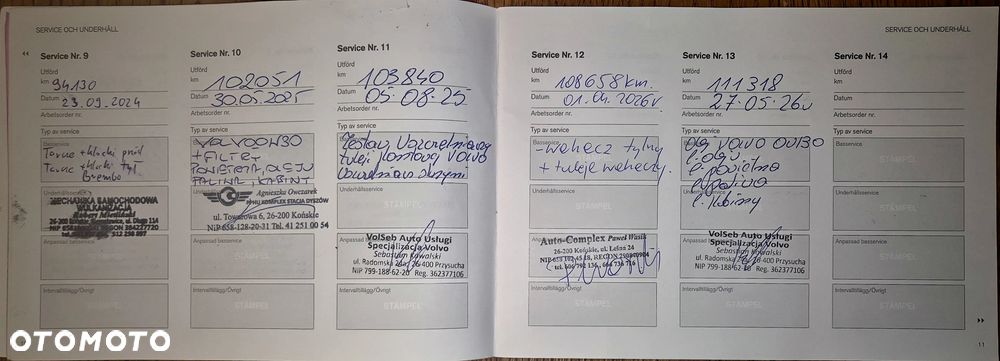 SERVICE OCH UNDERHÅLL
Service Nr. 9
Utförd
km 94130
Datum 23.09.2024
Arbetsorder nr.
Typ av service
Basservice
Tarcze + klocki przód
Tarcze + klocki tył
Brembo
Underhållsservice
MECHANIKA SAMOCHODOWA
WULKANIZACJA
Anpassad service
Intervalltillägg/Övrigt
STÄMPEL
Service Nr. 10
Utförd
km 102051
Datum 30.05.2025
Arbetsorder nr.
Typ av service
VOLVO 0W30
+ FILTRY
POWIETRZA, OLEJU
PALIWA, KABINY
Agnieszka Owczarek
PPHU KOMPLEX STACJA DYSZÓW
ul. Towarowa 6, 26-200 Końskie
NiP 658-128-20-31 Tel. 41 251 00 54
Anpassad service
Intervalltillägg/Övrigt
STÄMPEL
Service Nr. 11
Utförd
km 103840
Datum 05-08-25
Arbetsorder nr.
Typ av service
Zestaw
Volvo
STÄMPEL
Anpassad service
VolSeb Auto Usługi
Specjalizacja Volvo
Sebastian Kowalski
ul. Radomska 24a, 26-400 Przysucha
NIP 799-188-62-20 Reg. 362377106
Intervalltillägg/Övrigt
STÄMPEL
Service Nr. 12
Utförd
km 108658 km.
Datum 01.04.2026r
Arbetsorder nr.
Typ av service
Basservice
- wahacz tylny
+ tuleje wahaczy.
Underhållsservice
STÄMPEL
Anpassad service
Auto-Complex Paweł Wasik
26-200 Końskie, ul. Leśna 24
Intervalltillägg/Övrigt
STÄMPEL
Service Nr. 13
Utförd
km 111318
Datum 27-05-26r
Arbetsorder nr.
Typ av service
olej Volvo 0W30
f. oleju
f. powietrza
f. paliwa
f. kabinny
Anpassad service
VolSeb Auto Usługi
Specjalizacja Volvo
Sebastian Kowalski
ul. Radomska 24a, 26-400 Przysucha
NIP 799-188-62-20 Reg. 362377106
Intervalltillägg/Övrigt
STÄMPEL
SERVICE OCH UNDERHÅLL
Service Nr. 14
Utförd
km
Datum
Arbetsorder nr.
Typ av service
Basservice
STÄMPEL
Underhållsservice
STÄMPEL
Anpassad service
STÄMPEL
Intervalltillägg/Övrigt
STÄMPEL
11
OTOMOTO